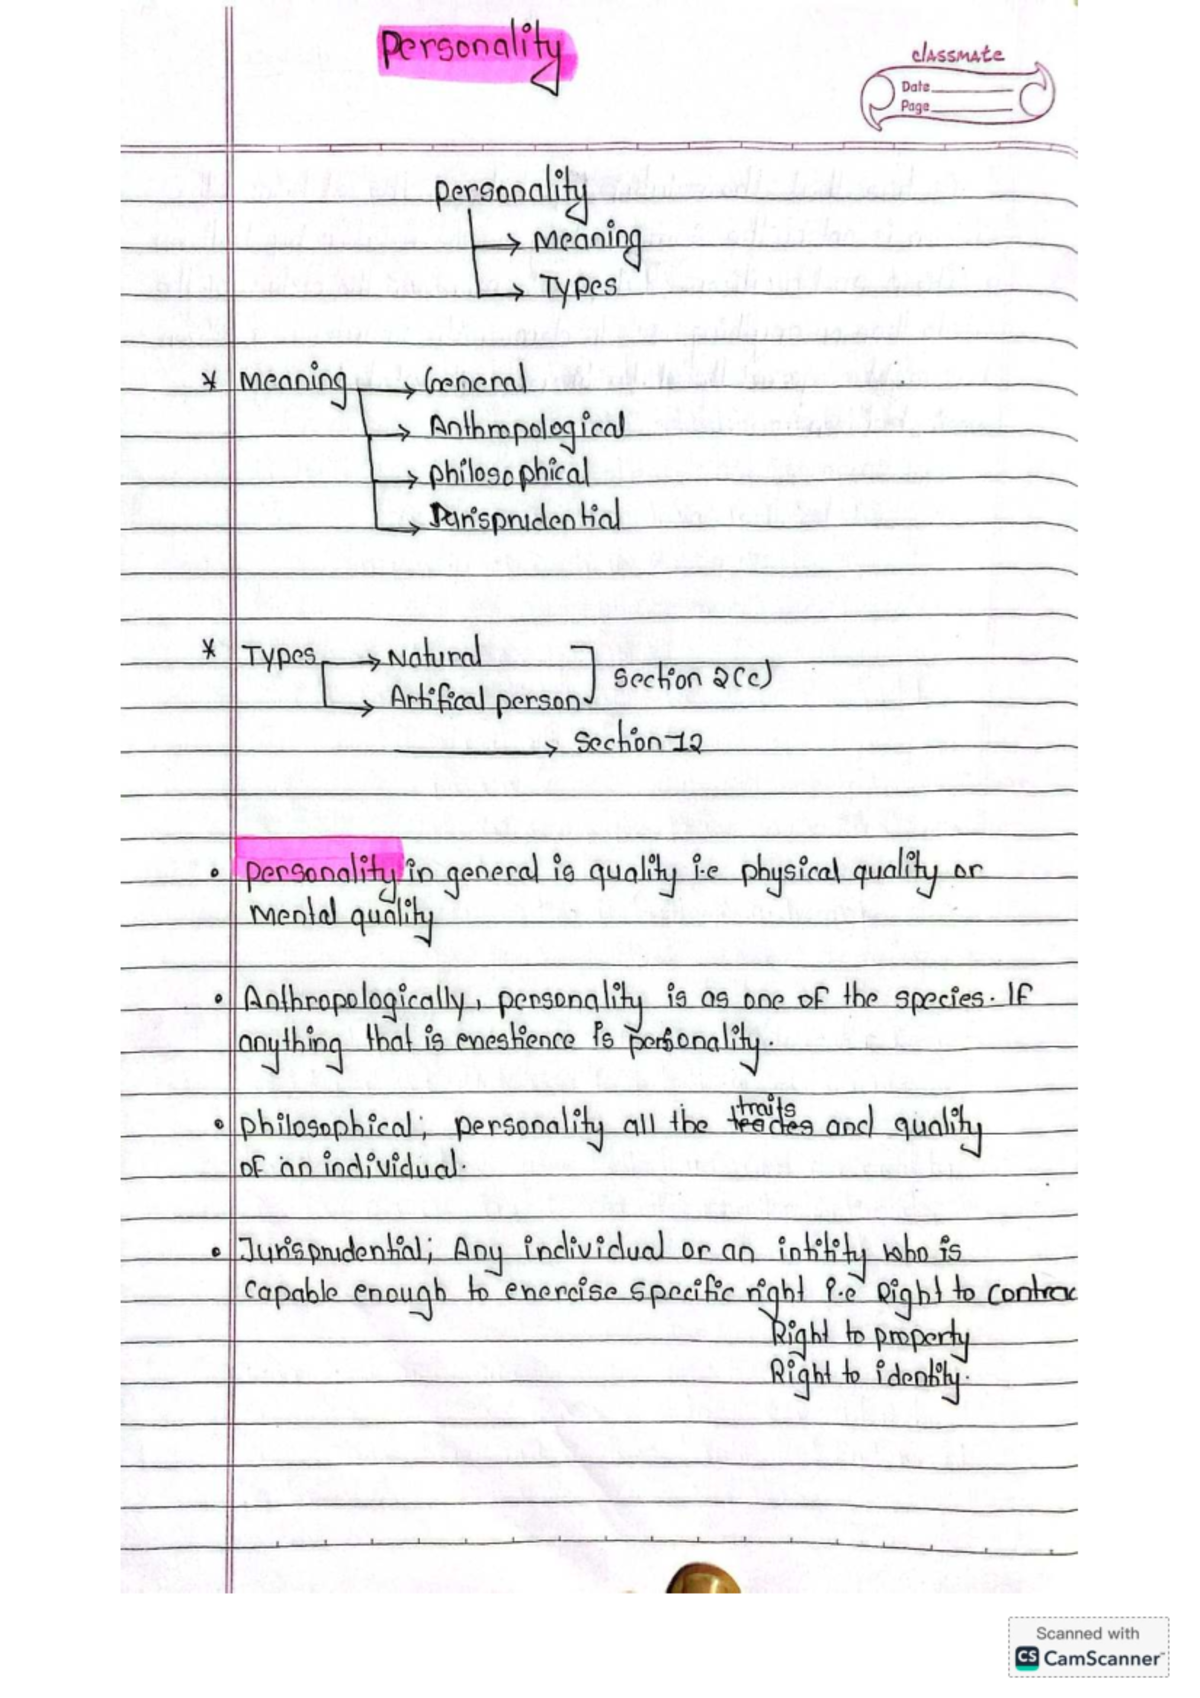 Personality
classmate
Date
Page
personality
→ Meaning
→ Types
* Meaning → General
→ Anthropological
→ philosophical
→ Jurisprudential
* Types → Natural
→ Artifical person
Section 2(c)
→ Section-12
• personality in general is quality i.e physical quality or
Mental quality
• Anthropologically, personality is as one of the species. If
anything that is enestience is personality.
• philosophical; personality all the traits and quality
of an individual.
• Jurisprudential; Any individual or an intitity who is
capable enough to enercise specific right i.e Right to contrac
Right to property
Right to identity.
Scanned with
CS CamScanner